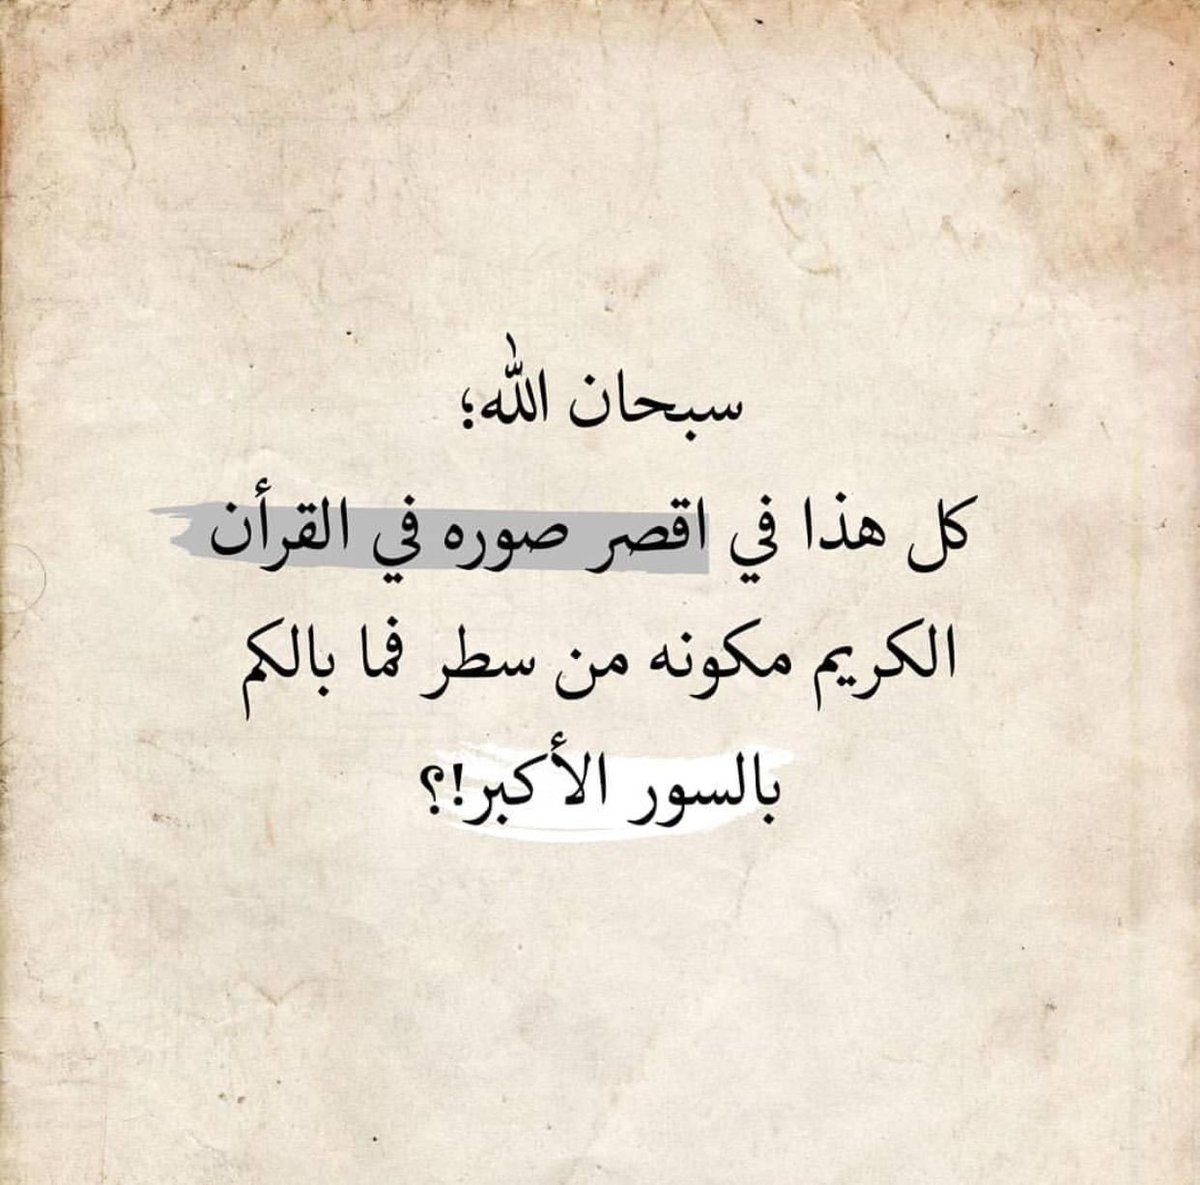 سبحان الله؛
كل هذا في اقصر صوره في القرأن
الكريم مكونه من سطر فما بالكم
بالسور الأكبر!؟